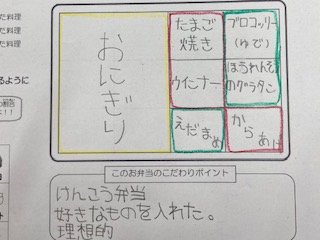 た料理
た料理
た料理
るように
おにぎり
たまご
焼き
ブロッコリー
(ゆで)
ウインナー
ほうれんそう
のグラタン
えだまめ
から
あげ
このお弁当のこだわりポイント
けんこう弁当
好きなものを入れた。
理想的